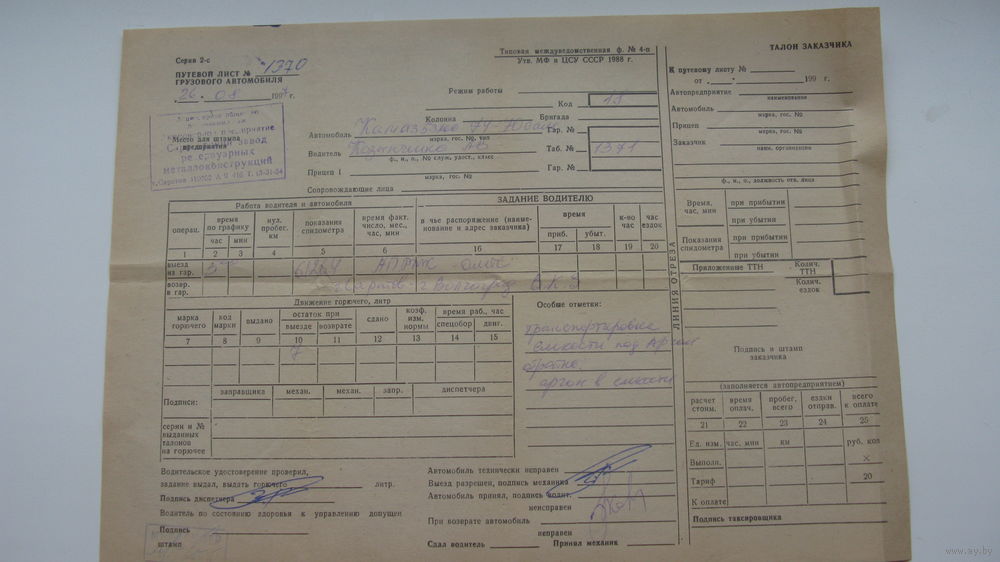 Серия 2-с
ПУТЕВОЙ ЛИСТ № 1370
ГРУЗОВОГО АВТОМОБИЛЯ
26. 08 199 г.
Место для штампа
предприятия
завод
резервуарных
металлоконструкций
Типовая междуведомственная ф. № 4-п
Утв. МФ и ЦСУ СССР 1988 г.
Режим работы
Код 18
Колонна Бригада
Автомобиль Гар. №
марка, гос. №, тип
Водитель Таб. № 1371
ф., и., о., № служ. удост., класс
Прицеп 1 Гар. №
марка, гос. №
Сопровождающие лица
Работа водителя и автомобиля
ЗАДАНИЕ ВОДИТЕЛЮ
операц. время по графику нул. пробег, км показания спидометра время факт. число, мес., час, мин в чье распоряжение (наименование и адрес заказчика) время к-во час час ездок
час мин приб. убыт.
1 2 3 4 5 6 16 17 18 19 20
выезд из гар.
возвр. в гар. г. Саратов - г. Волгоград
Движение горючего, литр
марка горючего код марки выдано остаток при сдано коэф. изм. нормы время раб., час
выезде возврате спецобор двиг.
7 8 9 10 11 12 13 14 15
заправщика механ. механ. запр. диспетчера
Подписи:
серии и № выданных талонов на горючее
Особые отметки:
транспортировка
емкости под Аргон
обратно
аргон в емкости
Водительское удостоверение проверил,
задание выдал, выдать горючего литр.
Подпись диспетчера
Водитель по состоянию здоровья к управлению допущен
Подпись
штамп
Автомобиль технически исправен
Выезд разрешен, подпись механика
Автомобиль принял, подпись водит.
неисправен
При возврате автомобиль
исправен
Сдал водитель Принял механик
ЛИНИЯ ОТРЕЗА
ТАЛОН ЗАКАЗЧИКА
К путевому листу №
от 199 г.
Автопредприятие
наименование
Автомобиль
марка, гос. №
Прицеп
марка, гос. №
Заказчик
наим. организации
ф., и., о., должность отв. лица
Время, час, мин при прибытии
при убытии
Показания спидометра при убытии
при прибытии
Приложенные ТТН Колич. ТТН
Колич. ездок
Подпись и штамп
заказчика
(заполняется автопредприятием)
расчет стоим. время оплач. пробег, всего ездки отправ. всего к оплате
21 22 23 24 25
Ед. изм. час, мин км руб, коп
Выполн. ×
Тариф 20
К оплате
Подпись таксировщика
www.ay.by